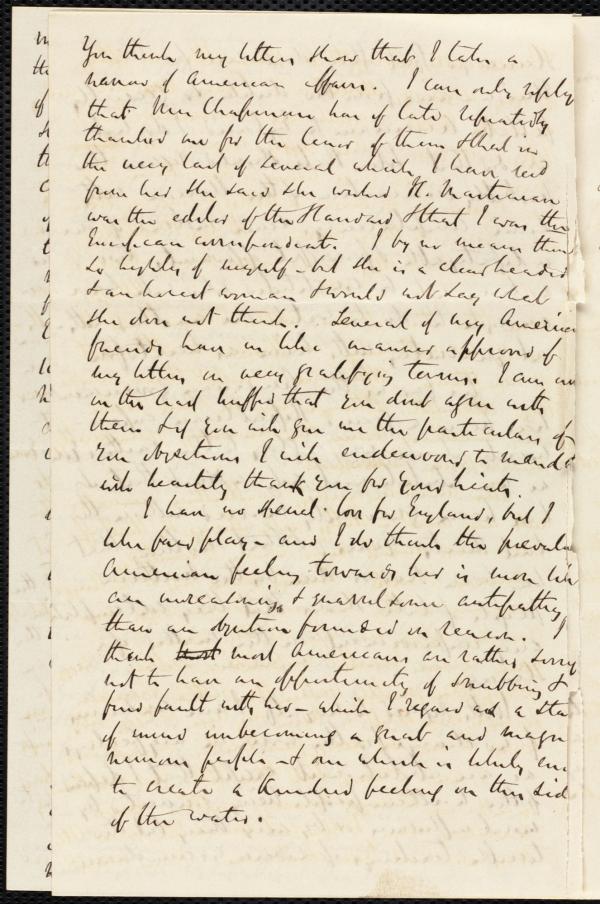 You think my letters show that I take a
narrow of American affairs. I can only reply
that Mrs Chapman has of late repeatedly
thanked me for the tenor of them & that in
the very last of several which I have recd
from her she said she wished H. Martineau
was the editor of the Standard & that I was the
European correspondent. I by no means think
so highly of myself - but she is a clearheaded
& an honest woman & would not say what
she does not think. Several of my American
friends have in like manner approved of
my letters in very gratifying terms. I am not
in the least huffed that you don't agree with
them & if you will give me the particulars of
your objections I will endeavour to mend &
will heartily thank you for your hints.
I have no special love for England, but I
like fair play - and I do think the prevalent
American feeling towards her is more like
an unreasoning & quarrelsome antipathy
than an objection founded on reason. I
think most Americans are rather sorry
not to have an opportunity of snubbing &
find fault with her - which I regard as a state
of mind unbecoming a great and magn
nimous people - & one which is likely
to create a kindred feeling on this side
of the water.